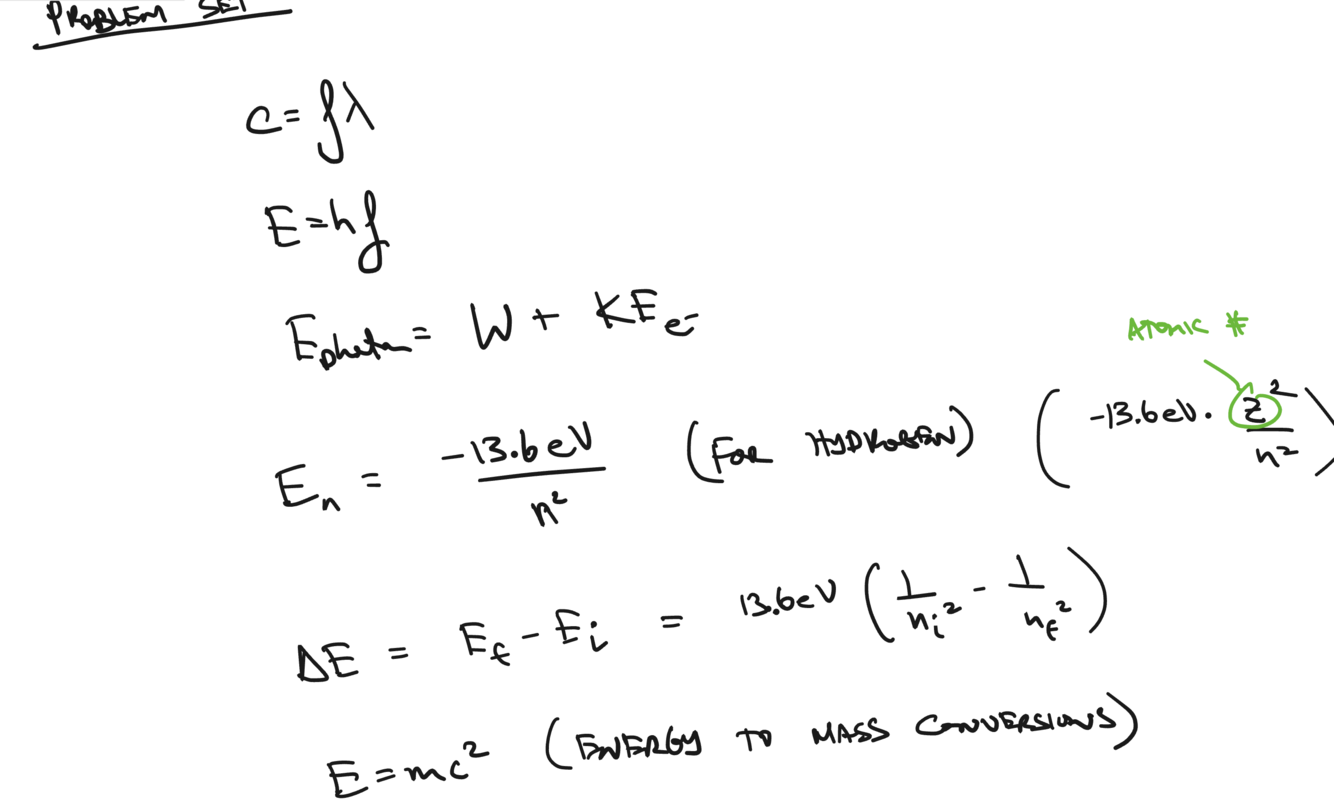 PROBLEM SET
c = fλ
E = hf
Ephoton = W + KE e-
ATOMIC #
En = -13.6 eV / n² (FOR HYDROGEN) ( -13.6 eV · Z² / n² )
ΔE = Ef - Ei = 13.6 eV ( 1/ni² - 1/nf² )
E = mc² (ENERGY TO MASS CONVERSIONS)